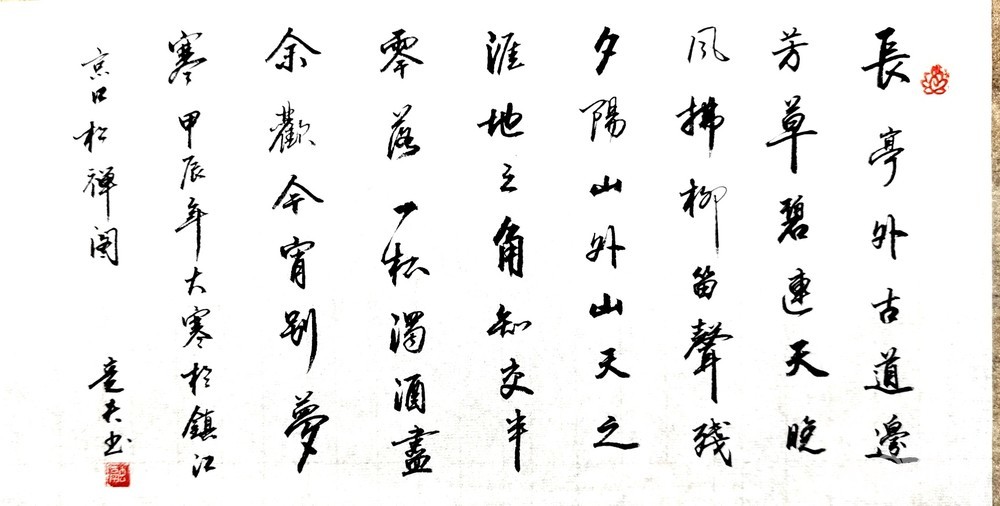 長亭外古道邊
芳草碧連天晚
風拂柳笛聲殘
夕陽山外山天之
涯地之角知交半
零落一松濁酒盡
余歡今宵別夢
寒甲辰年大寒於鎮江
京口松禅阁
意夫书